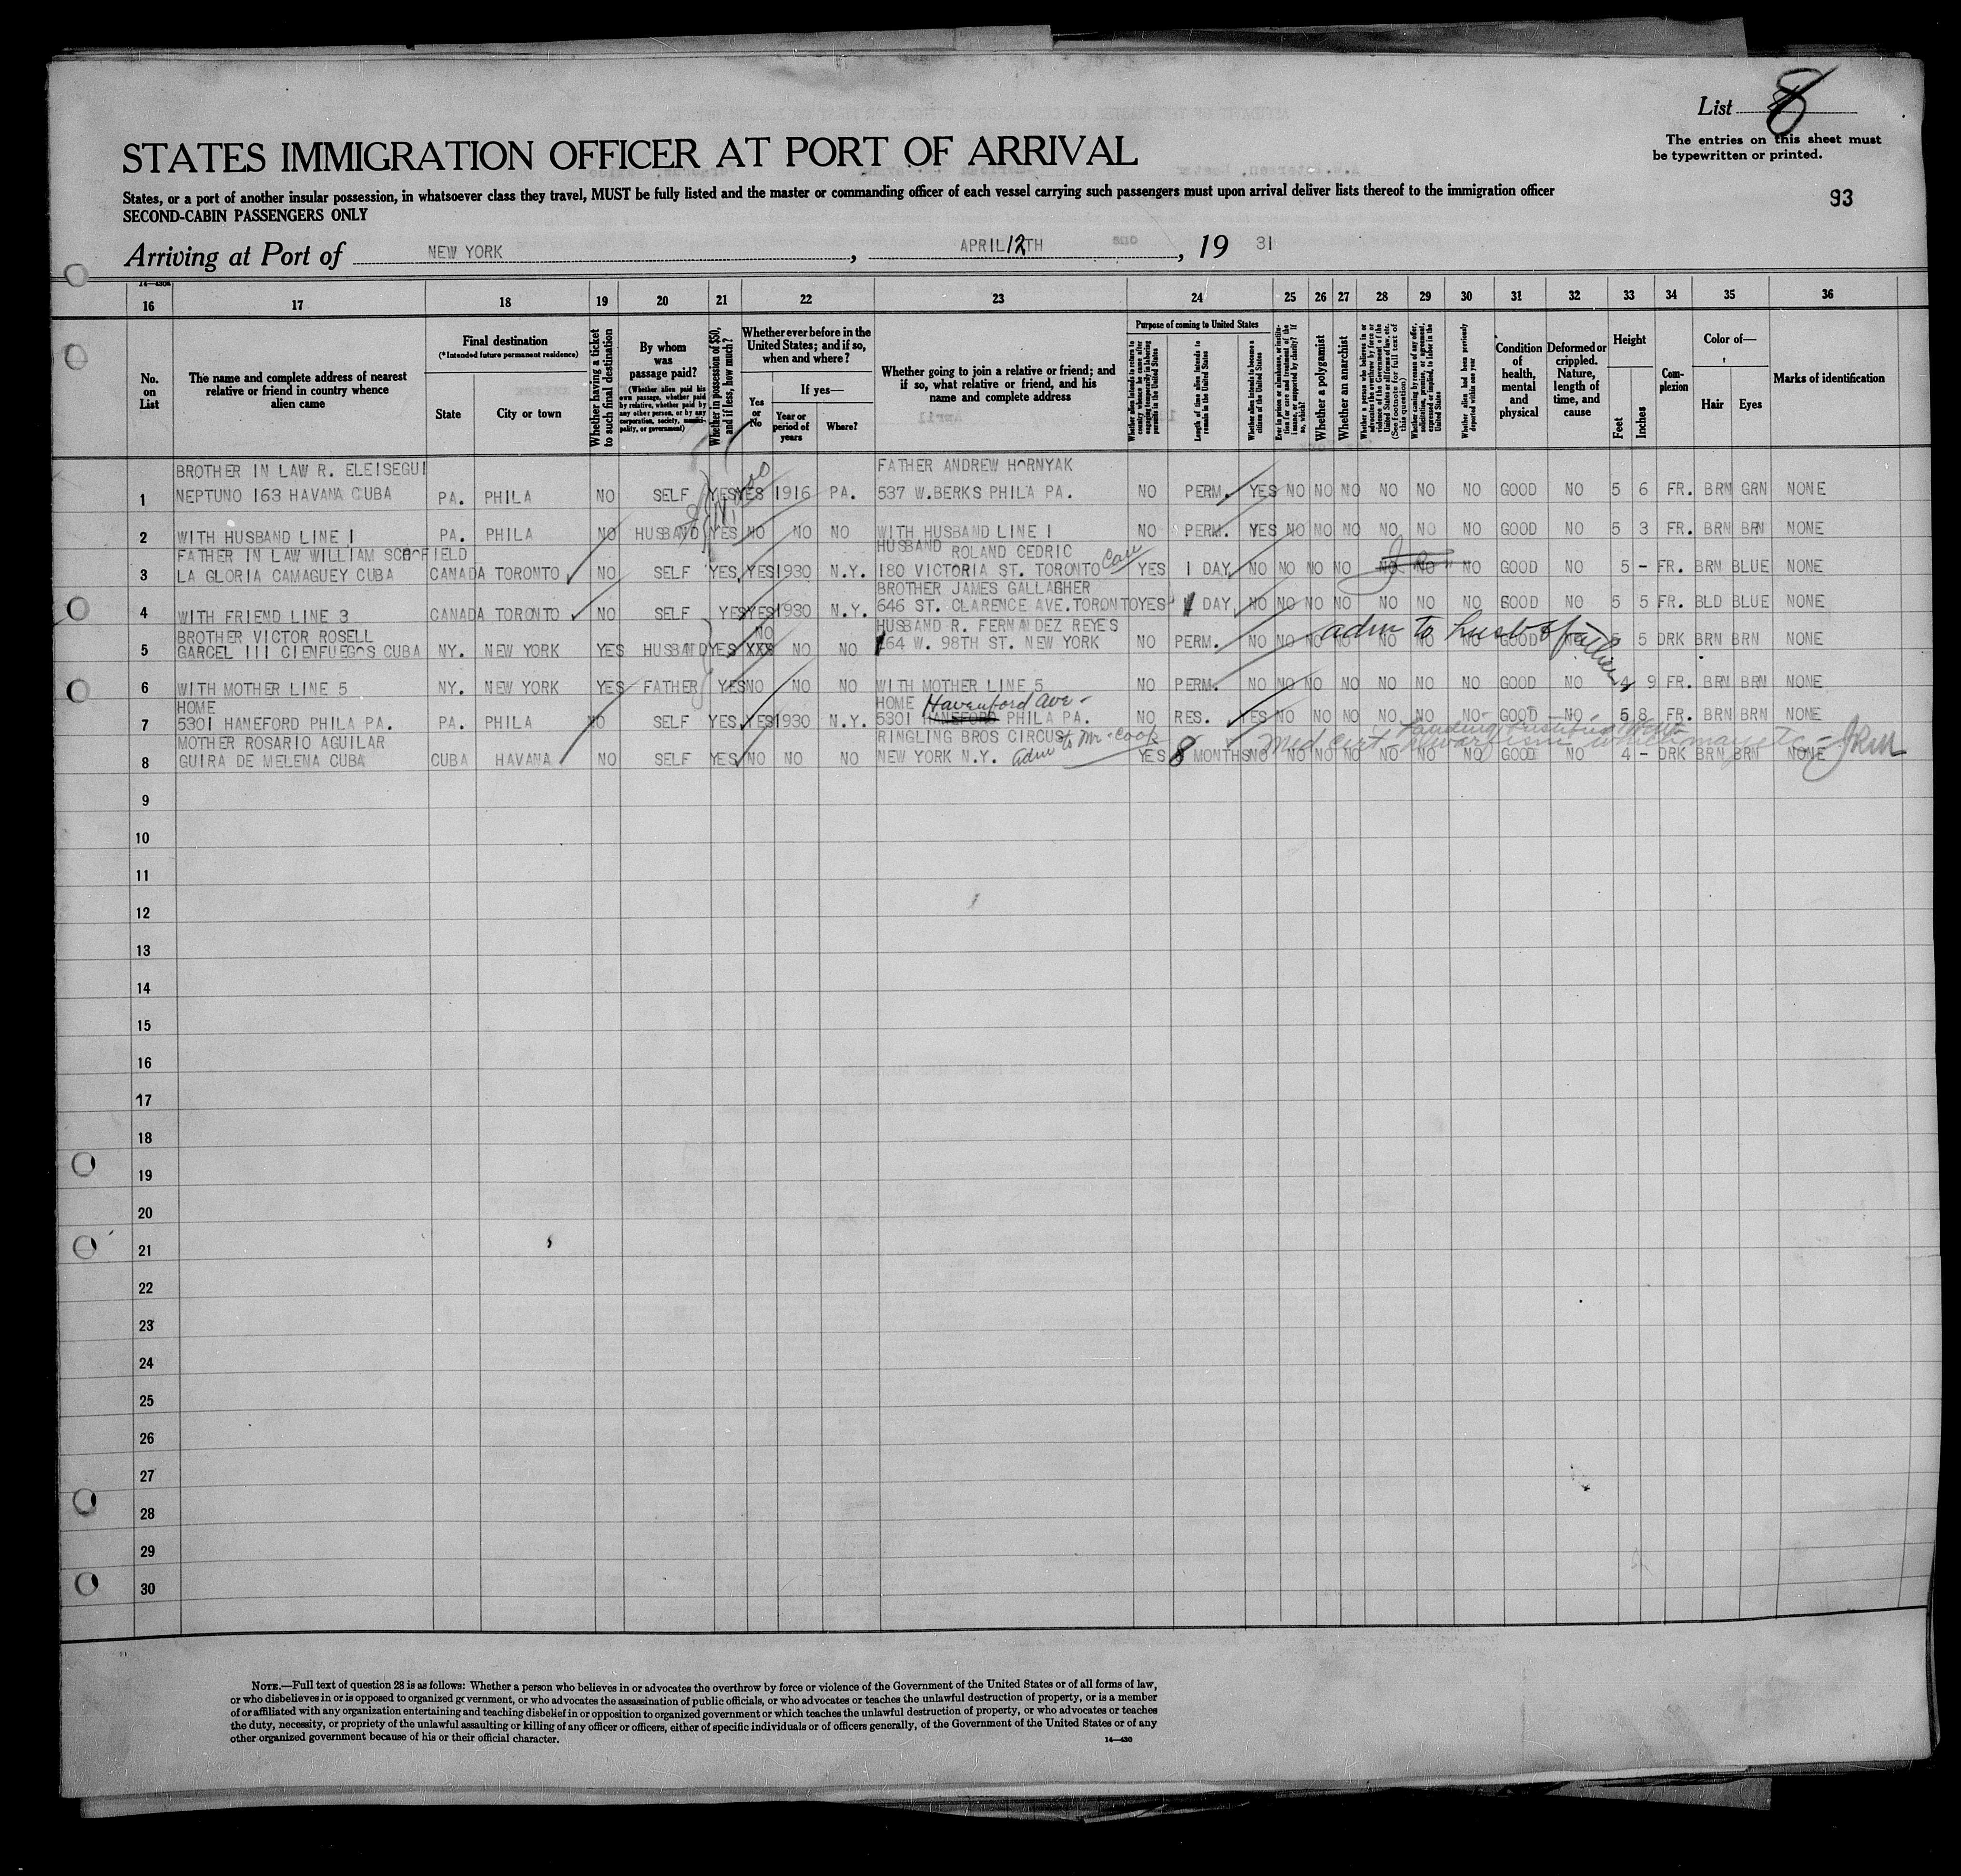 List 8
The entries on this sheet must
be typewritten or printed.
STATES IMMIGRATION OFFICER AT PORT OF ARRIVAL
States, or a port of another insular possession, in whatsoever class they travel, MUST be fully listed and the master or commanding officer of each vessel carrying such passengers must upon arrival deliver lists thereof to the immigration officer
93
SECOND-CABIN PASSENGERS ONLY
Arriving at Port of NEW YORK, APRIL 12TH, 19 31
16 17 18 19 20 21 22 23 24 25 26 27 28 29 30 31 32 33 34 35 36
No. on List
The name and complete address of nearest relative or friend in country whence alien came
Final destination
(*Intended future permanent residence)
State
City or town
Whether having a ticket to such final destination
By whom was passage paid?
(Whether alien paid his own passage, whether paid by relative, whether paid by any other person, or by any corporation, society, municipality, or government)
Whether in possession of $50, and if less, how much?
Whether ever before in the United States; and if so, when and where?
Yes or No
If yes—
Year or period of years
Where?
Whether going to join a relative or friend; and if so, what relative or friend, and his name and complete address
Purpose of coming to United States
Whether alien intends to return to country whence he came after engaging temporarily in laboring pursuits in the United States
Length of time alien intends to remain in the United States
Whether alien intends to become a citizen of the United States
Ever in prison or almshouse, or institution for care and treatment of the insane, or supported by charity? If so, which?
Whether a polygamist
Whether an anarchist
Whether a person who believes in or advocates the overthrow by force or violence of the Government of the United States or all forms of law, etc. (See footnote for full text of this question)
Whether coming by reason of any offer, solicitation, promise, or agreement, expressed or implied, to labor in the United States
Whether alien had been previously deported within one year
Condition of health, mental and physical
Deformed or crippled. Nature, length of time, and cause
Height
Feet
Inches
Complexion
Color of—
Hair
Eyes
Marks of identification
BROTHER IN LAW R. ELEISEGUI FATHER ANDREW HORNYAK
1 NEPTUNO 163 HAVANA CUBA PA. PHILA NO SELF YES YES 1916 PA. 537 W.BERKS PHILA PA. NO PERM. YES NO NO NO NO NO NO GOOD NO 5 6 FR. BRN GRN NONE
2 WITH HUSBAND LINE 1 PA. PHILA NO HUSBAND YES NO NO NO WITH HUSBAND LINE 1 NO PERM. YES NO NO NO NO NO NO GOOD NO 5 3 FR. BRN BRN NONE
FATHER IN LAW WILLIAM SCHOFIELD HUSBAND ROLAND CEDRIC
3 LA GLORIA CAMAGUEY CUBA CANADA TORONTO NO SELF YES YES 1930 N.Y. 180 VICTORIA ST. TORONTO YES 1 DAY NO NO NO NO NO NO NO GOOD NO 5 - FR. BRN BLUE NONE
BROTHER JAMES GALLAGHER
4 WITH FRIEND LINE 3 CANADA TORONTO NO SELF YES YES 1930 N.Y. 646 ST. CLARENCE AVE.TORONTO YES 1 DAY NO NO NO NO NO NO NO GOOD NO 5 5 FR. BLD BLUE NONE
BROTHER VICTOR ROSELL NO HUSBAND R. FERNANDEZ REYES adm to husb & father
5 GARCEL 111 CIENFUEGOS CUBA NY. NEW YORK YES HUSBAND YES XXX NO NO 164 W. 98TH ST. NEW YORK NO PERM. NO NO NO NO NO NO NO GOOD NO 5 5 DRK BRN BRN NONE
6 WITH MOTHER LINE 5 NY. NEW YORK YES FATHER YES NO NO NO WITH MOTHER LINE 5 NO PERM. NO NO NO NO NO NO NO GOOD NO 4 9 FR. BRN BRN NONE
HOME HOME Haverford Ave-
7 5301 HANEFORD PHILA PA. PA. PHILA NO SELF YES YES 1930 N.Y. 5301 HANEFORD PHILA PA. NO RES. YES NO NO NO NO NO NO GOOD NO 5 8 FR. BRN BRN NONE
MOTHER ROSARIO AGUILAR RINGLING BROS CIRCUS adm to Mr. Cook Med Cert
8 GUIRA DE MELENA CUBA CUBA HAVANA NO SELF YES NO NO NO NEW YORK N.Y. YES 8 MONTHS NO NO NO NO NO NO NO GOOD NO 4 - DRK BRN BRN NONE
9
10
11
12
13
14
15
16
17
18
19
20
21
22
23
24
25
26
27
28
29
30
NOTE.—Full text of question 28 is as follows: Whether a person who believes in or advocates the overthrow by force or violence of the Government of the United States or of all forms of law,
or who disbelieves in or is opposed to organized government, or who advocates the assassination of public officials, or who advocates or teaches the unlawful destruction of property, or is a member
of or affiliated with any organization entertaining and teaching disbelief in or opposition to organized government or which teaches the unlawful destruction of property, or who advocates or teaches
the duty, necessity, or propriety of the unlawful assaulting or killing of any officer or officers, either of specific individuals or of officers generally, of the Government of the United States or of any
other organized government because of his or their official character.
14—430